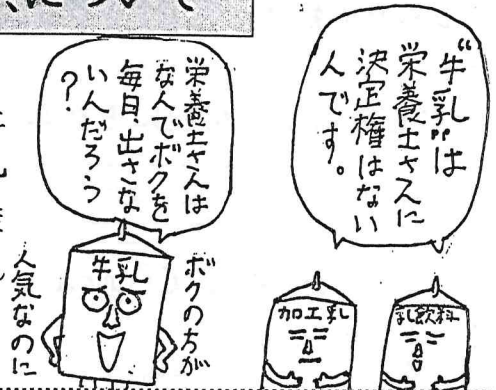 について
“牛乳”は
栄養士さんに
決定権はない
んです。
栄養士さんは
なんでボクを
毎日、出さな
いんだろう
？
牛乳
ボクの方が
人気なのに
加工乳
乳飲料